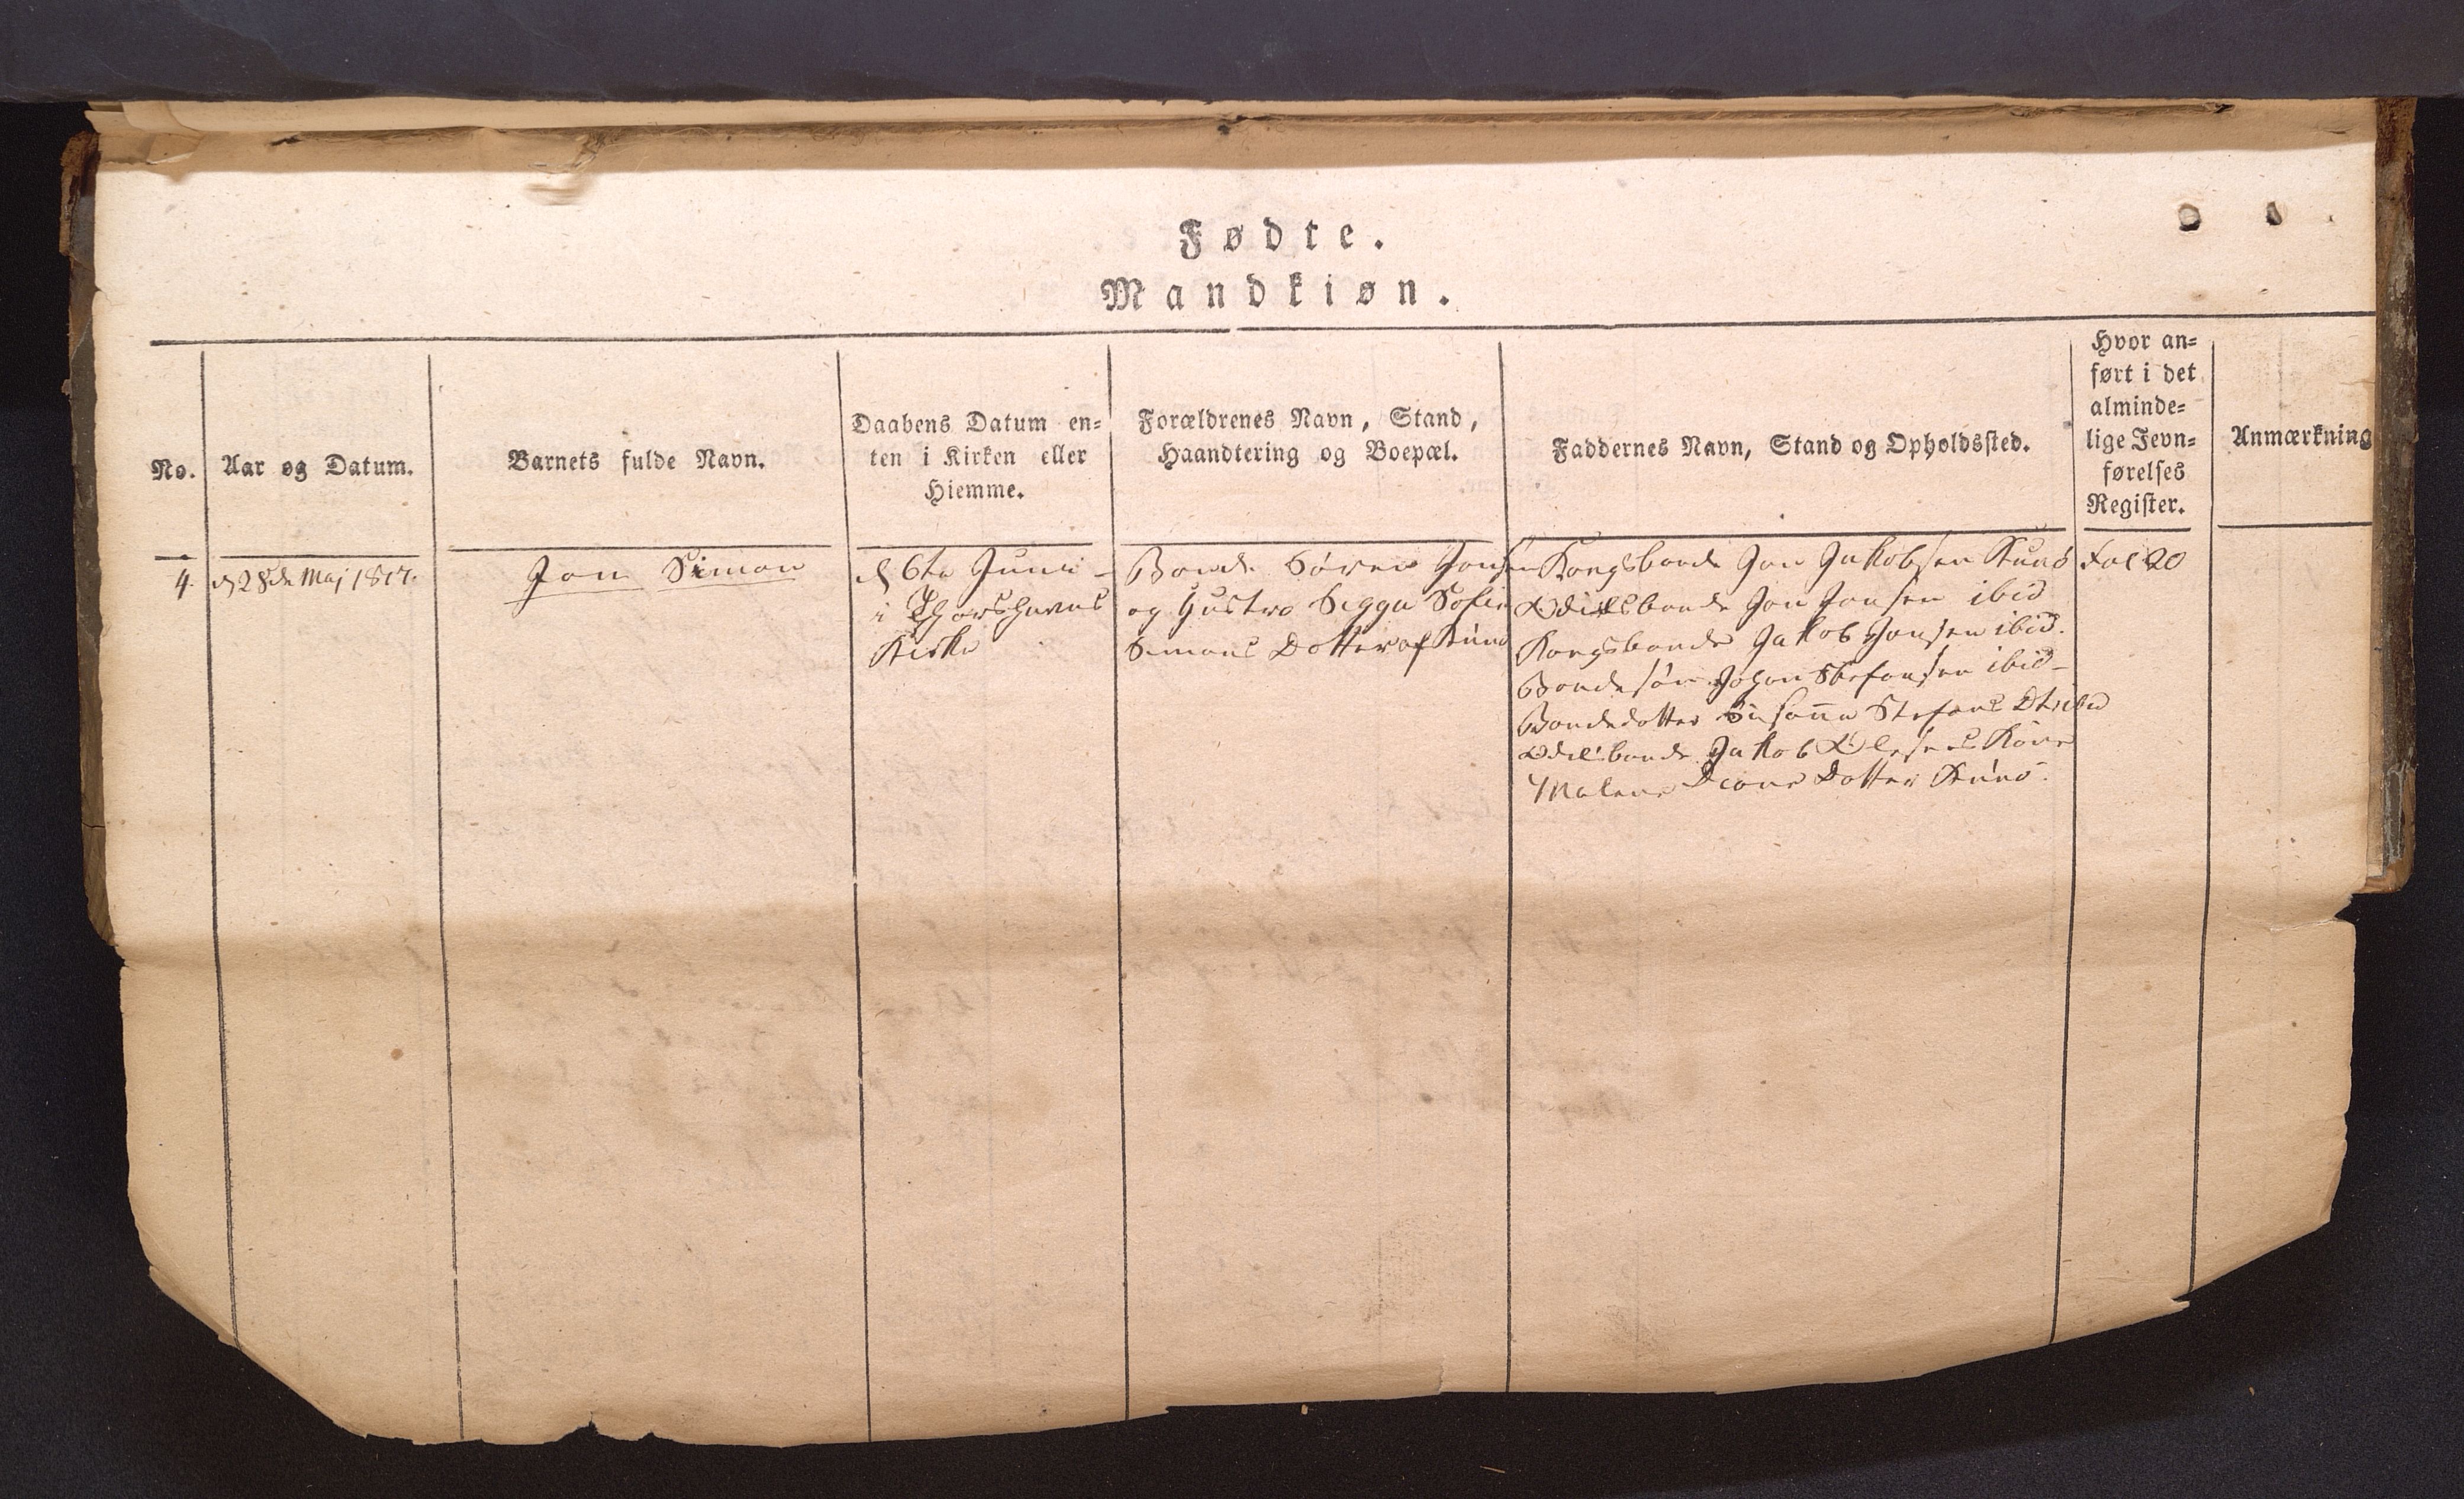 Fødte.
Mandkiøn.
No.
Aar og Datum.
Barnets fulde Navn.
Daabens Datum en=
ten i Kirken eller
Hiemme.
Forældrenes Navn, Stand,
Haandtering og Boepæl.
Faddernes Navn, Stand og Opholdssted.
Hvor an=
ført i det
alminde=
lige Jevn=
førelses
Register.
Anmærkning
4.
d 28de Maj 1817.
Jon Simon
d 6te Juni -
i Thorshavns
Kirke
Bonde Sören Jonsen
og Hustro Sigga Sofie
Simons Dotter af Kunö
Kongsbonde Jon Jakobsen Kunö
Odelsbonde Jon Jonsen ibid
Kongsbonde Jakob Jonsen ibid.
Bondesön Johan Stefansen ibid -
Bondedotter Susanna Stefans Dtr ibid
Odelsbonde Jakob Olesens Kone
Malene Dotter Kunö.
Fol 20